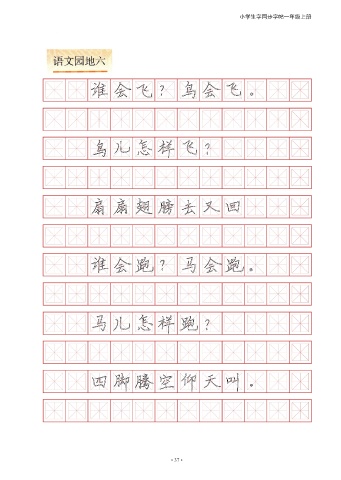 小学生字同步字帖一年级上册
语文园地六
谁会飞？鸟会飞。
鸟儿怎样飞？
扇扇翅膀去又回
谁会跑？马会跑。
马儿怎样跑？
四脚腾空仰天叫。
·37·